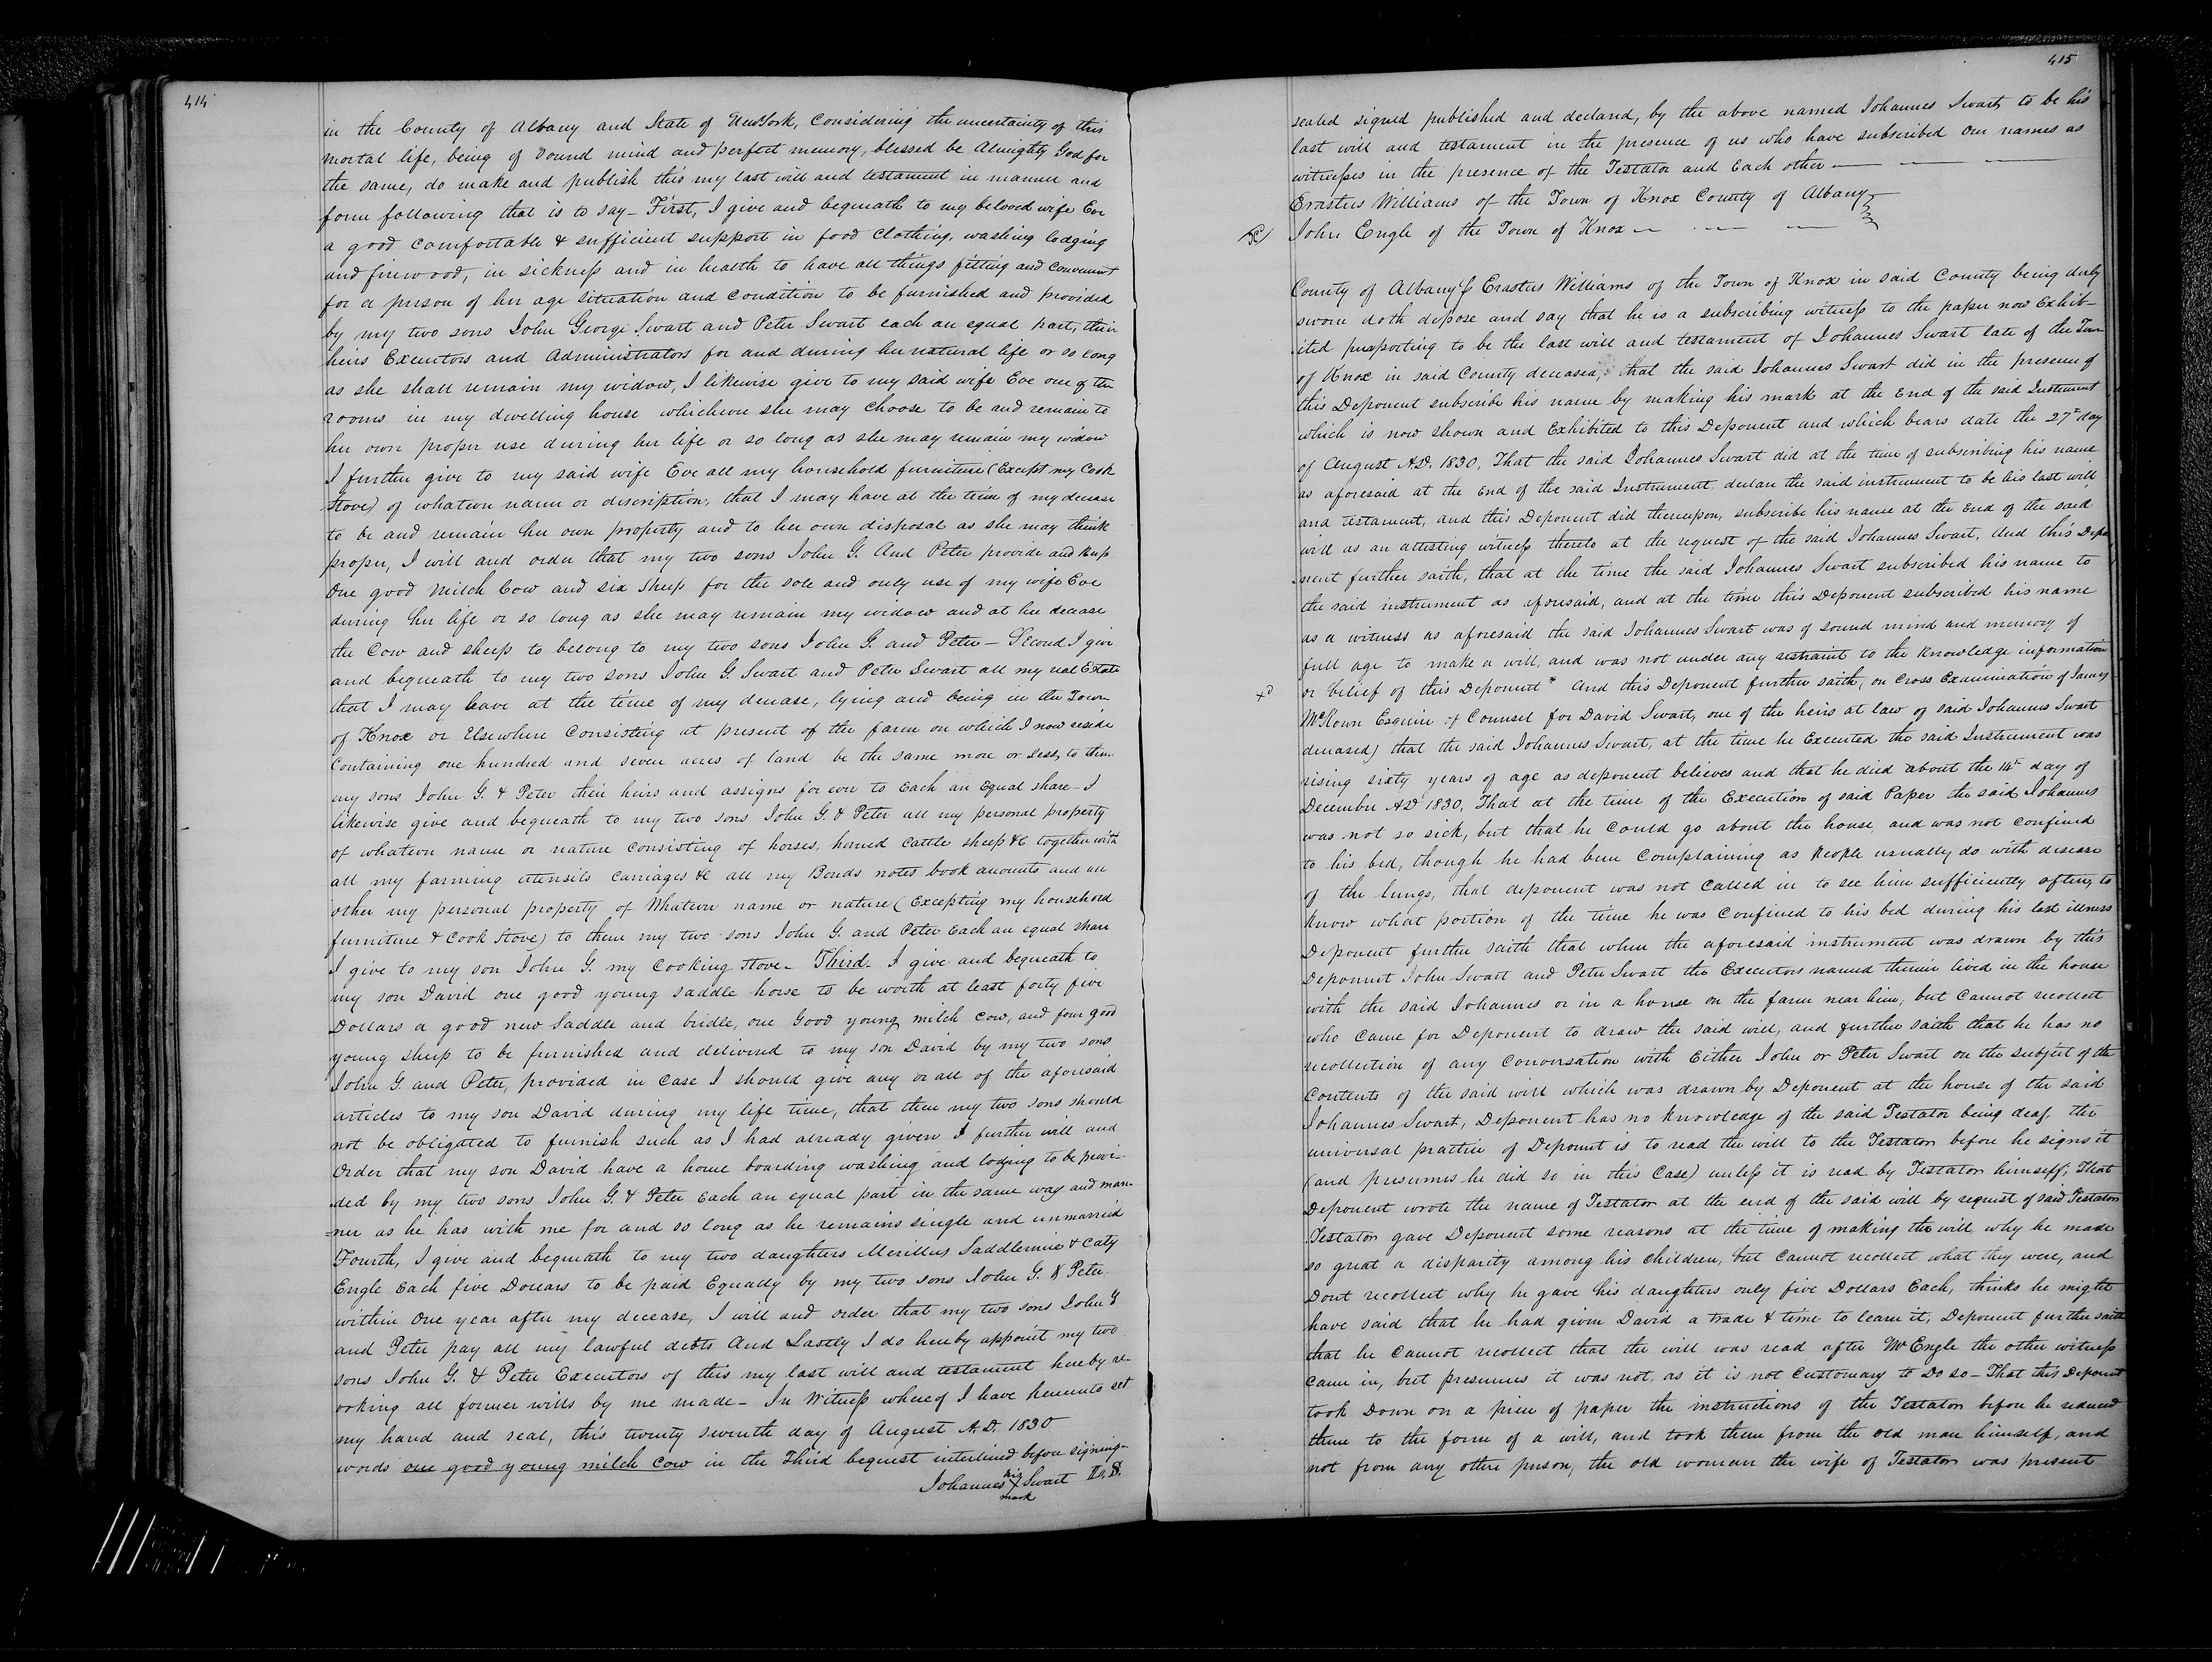 414
in the County of Albany and State of New York, Considering the uncertainty of this
mortal life, being of Sound mind and perfect memory, blessed be Almighty God for
the same, do make and publish this my last will and testament in manner and
form following that is to say – First, I give and bequeath to my beloved wife Eve
a good comfortable & sufficient support in food Clothing, washing lodging
and firewood, in sickness and in health to have all things fitting and Convenient
for a person of her age situation and Condition to be furnished and provided
by my two sons John George Swart and Peter Swart each an equal part, their
heirs Executors and Administrators for and during her natural life or so long
as she shall remain my widow, I likewise give to my said wife Eve one of the
rooms in my dwelling house whichever she may Choose to be and remain to
her own proper use during her life or so long as she may remain my widow
I further give to my said wife Eve all my household furniture (Except my Cook
stove) of whatever name or discription, that I may have at the time of my decease
to be and remain her own property and to her own disposal as she may think
proper, I will and order that my two sons John G. And Peter provide and keep
One good Milch Cow and six sheep for the sole and only use of my wife Eve
during her life or so long as she may remain my widow and at her decease
the Cow and sheep to belong to my two sons John G. and Peter – Second I give
and bequeath to my two sons John G Swart and Peter Swart all my real Estate
that I may have at the time of my decease, lying and being in the Town
of Knox or Elsewhere Consisting at present of the farm on which I now reside
Containing one hundred and seven acres of land be the same more or less, to them
my sons John G. & Peter their heirs and assigns forever to Each an Equal share – I
likewise give and bequeath to my two sons John G. & Peter all my personal property
of whatever name or nature Consisting of horses, horned Cattle sheep &c together with
all my farming utensils Carriages &c all my Bonds notes book accounts and all
other my personal property of Whatever name or nature (Excepting my household
furniture & Cook Stove) to them my two sons John G. and Peter Each an equal share
I give to my son John G. my Cooking Stove – Third – I give and bequeath to
my son David one good young saddle horse to be worth at least forty five
Dollars a good new Saddle and bridle, one Good young milch Cow, and four good
young sheep to be furnished and delivered to my son David by my two sons
John G. and Peter, provided in Case I should give any or all of the aforesaid
articles to my son David during my life time, that then my two sons should
not be obligated to furnish such as I had already given I further will and
Order that my son David have a home boarding washing and lodging to be provi-
ded by my two sons John G. & Peter Each an equal part in the same way and man-
=ner as he has with me for and so long as he remains single and unmarried
Fourth, I give and bequeath to my two daughters Merillus Saddlemire & Caty
Engle Each five Dollars to be paid Equally by my two sons John G. & Peter
within One year after my decease, I will and order that my two sons John G
and Peter pay all my lawful debts And Lastly I do hereby appoint my two
sons John G. & Peter Executors of this my last will and testament hereby re-
voking all former wills by me made – In Witness whereof I have hereunto set
my hand and seal, this twenty seventh day of August A.D. 1830
words one good young milch Cow in the Third bequest interlined before signing–
Johannes his X mark Swart L.S.
415
sealed signed published and declared, by the above named Johannes Swart, to be his
last will and testament in the presence of us who have subscribed Our names as
witnesses in the presence of the Testator and Each other —
Erastus Williams of the Town of Knox County of Albany
John Engle of the Town of Knox —
County of Albany Erastus Williams of the Town of Knox in said County being duly
sworn doth depose and say that he is a subscribing witness to the paper now Exhib-
ited purporting to be the last will and testament of Johannes Swart late of the Town
of Knox in said County deceased, that the said Johannes Swart did in the presence of
this Deponent subscribe his name by making his mark at the End of the said Instrument
which is now shown and Exhibited to this Deponent and which bears date the 27th day
of August A.D. 1830, That the said Johannes Swart did at the time of subscribing his name
as aforesaid at the End of the said Instrument declare the said instrument to be his last will
and testament, and this Deponent did thereupon, subscribe his name at the End of the said
will as an attesting witness thereto at the request of the said Johannes Swart, And this Depo
nent further saith, that at the time the said Johannes Swart subscribed his name to
the said instrument as aforesaid, and at the time this Deponent subscribed his name
as a witness as aforesaid the said Johannes Swart was of sound mind and memory of
full age to make a will, and was not under any restraint to the knowledge information
xd or belief of this Deponent* And this Deponent further saith, on Cross Examination of James
McKown Esquire of Counsel for David Swart, one of the heirs at law of said Johannes Swart
deceased) that the said Johannes Swart, at the time he Executed the said Instrument was
rising sixty years of age as deponent believes and that he died about the 14th day of
December AD 1830, That at the time of the Execution of said Paper the said Johannes
was not so sick, but that he Could go about the house, and was not Confined
to his bed, though he had been Complaining as People usually do with disease
of the lungs, that deponent was not Called in to see him sufficiently often, to
Know what portion of the time he was Confined to his bed during his last illness
Deponent further saith that when the aforesaid instrument was drawn by this
Deponent John Swart and Peter Swart the Executors named therein lived in the house
with the said Johannes or in a house on the farm near him, but Cannot recollect
who Came for Deponent to draw the said will, and further saith that he has no
recollection of any Conversation with Either John or Peter Swart on the subject of the
Contents of the said will which was drawn by Deponent at the house of the said
Johannes Swart, Deponent has no knowledge of the said Testator being deaf, the
universal practice of Deponent is to read the will to the Testator before he signs it
(and presumes he did so in this Case) unless it is read by Testator himself; That
Deponent wrote the name of Testator at the end of the said will by request of said Testator
Testator gave Deponent some reasons at the time of making the will, why he made
so great a disparity among his Children, but Cannot recollect what they were, and
Dont recollect why he gave his daughters only five Dollars Each, thinks he might
have said that he had given David a trade & time to learn it, Deponent further saith
that he Cannot recollect that the will was read after Mr Engle the other witness
Came in, but presumes it was not, as it is not Customary to Do so – That this Deponent
took Down on a piece of paper the instructions of the Testator before he reduced
them to the form of a will, and took them from the old man himself, and
not from any other person, the old woman the wife of Testator was present